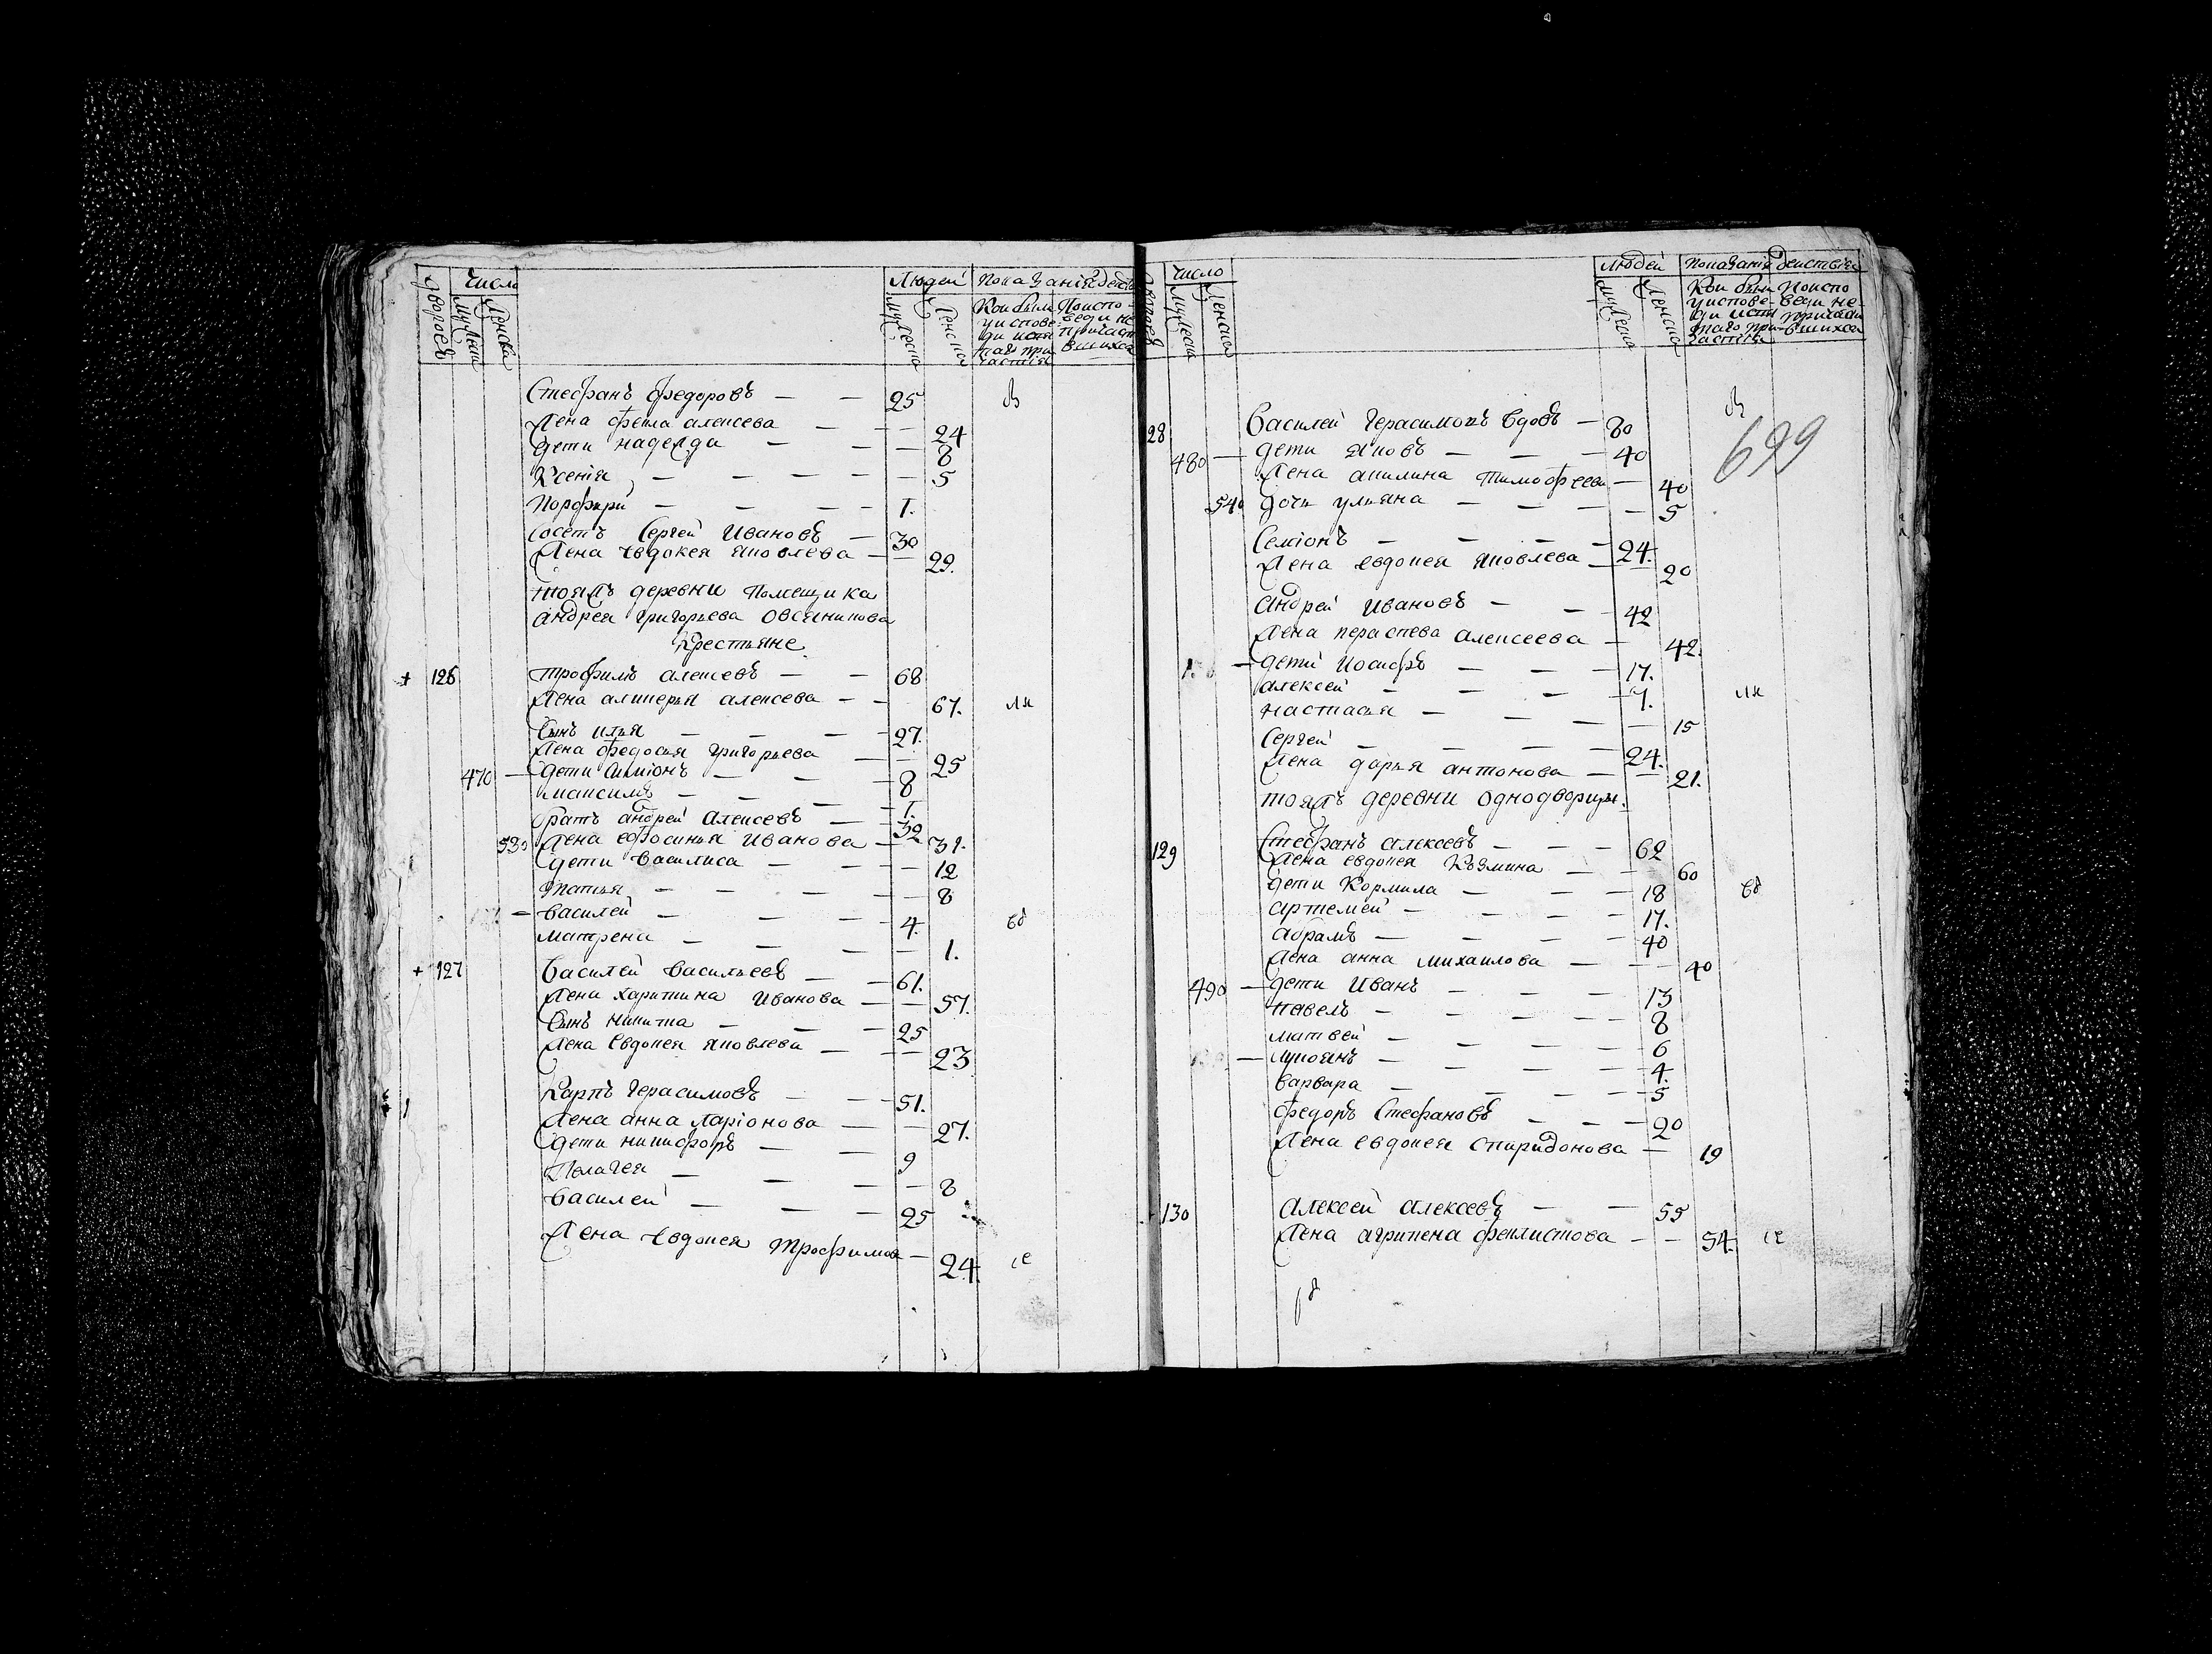 Число
Людей Показанія действ
дворовъ
мужеска
женска
мужеска
женска
Кои были
у испове-
ди и свя
таго при
частія
По испо-
веди не
причаст
вшихся
Стефанъ федоровъ — — 25
Жена фекла алексева — — 24
Дети надежда — — — 8
Ксенія — — — — 5
Порфири — — — — 1.
Сосетъ Сергей Ивановъ — 30
Жена Евдокея яковлева — — 29.
тояжъ деревни Помещика
андрея григорьева Овсяникова
Крестьяне
+ 126 трофимъ алексевъ — — 68
Жена алимерья алексева — — 67.
Сынъ илья — — — 27.
Жена федосья григорьева — — 25
470 — Дети Симіонъ — — — 8
максимъ — — — 1.
братъ андрей Алексевъ — — 32
530 Жена ефросинья Иванова — 31.
Дети василиса — — — 12
татья — — — — 8
— василей — — — 4.
матрена — — — — 1.
+ 127 Василей васильевъ — — 61.
Жена харитина Иванова — — 57.
Сынъ никита — — — 25
Жена Евдокея яковлева — — 23
Карпъ герасимовъ — — 51.
Жена анна ларіонова — — 27.
Дети никифоръ — — 9
Пелагея — — — — 8
василей — — — 25
Жена Евдокея трофимова — 24.
Число
Людей Показанія действія
дворовъ
мужеска
женска
мужеска
женска
Кои были
у испове-
ди и свя
таго при-
частія
По испо
веди не-
причаст
вшихся
699
28 Василей Герасимовъ вдовъ — 80
480 — Дети яковъ — — — 40
Жена акилина тимофеева — 40
540 Дочь ульяна — — — — 5
Семіонъ — — — — 24.
Жена евдокея яковлева — — 20
Андрей Ивановъ — — — 42
Жена пераскева алексеева — 42.
— Дети иосифъ — — — 17.
алексей — — — — 7.
настасья — — — — 15
Сергей — — — — 24.
Жена дарья антонова — — 21.
тояжъ деревни однодворцы.
129 Стефанъ алексевъ — — — 62
Жена евдокея Козмина — — 60
Дети Кормила — — — 18
артемей — — — — 17.
абрамъ — — — — 40
Жена анна михаилова — — — 40
490 — Дети Иванъ — — — 13
павелъ — — — — 8
матвей — — — — 6
— лукоянъ — — — — 4.
варвара — — — — 5
федоръ Стефановъ — — — 20
Жена евдокея спиридонова — 19
130 Алексей Алексевъ — — 55
Жена агрипена феклистова — — 54.